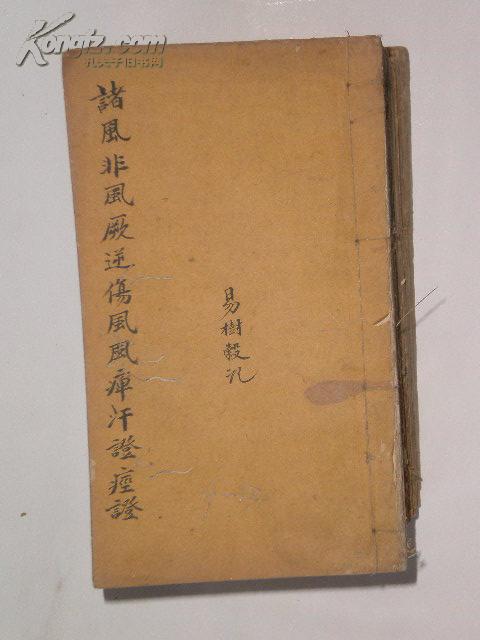 Kongfz.com
孔夫子旧书网
諸風非風厥逆傷風風痺汗證痙證
易樹穀記